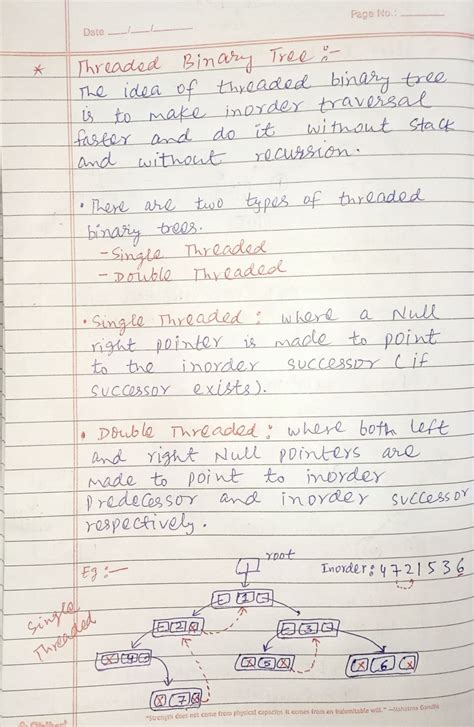 Page No.:
Date __/__/__
* Threaded Binary Tree :-
The idea of threaded binary tree
is to make inorder traversal
faster and do it without stack
and without recursion.
• There are two types of threaded
binary trees.
- Single Threaded
- Double Threaded
• Single Threaded : where a Null
right pointer is made to point
to the inorder successor (if
successor exists).
• Double Threaded : where both left
and right Null pointers are
made to point to inorder
predecessor and inorder successor
respectively.
Eg :-
root
Inorder : 4721536
Single
Threaded
1
2
3
4
5
6
7
"Strength does not come from physical capacity. It comes from an indomitable will." —Mahatma Gandhi